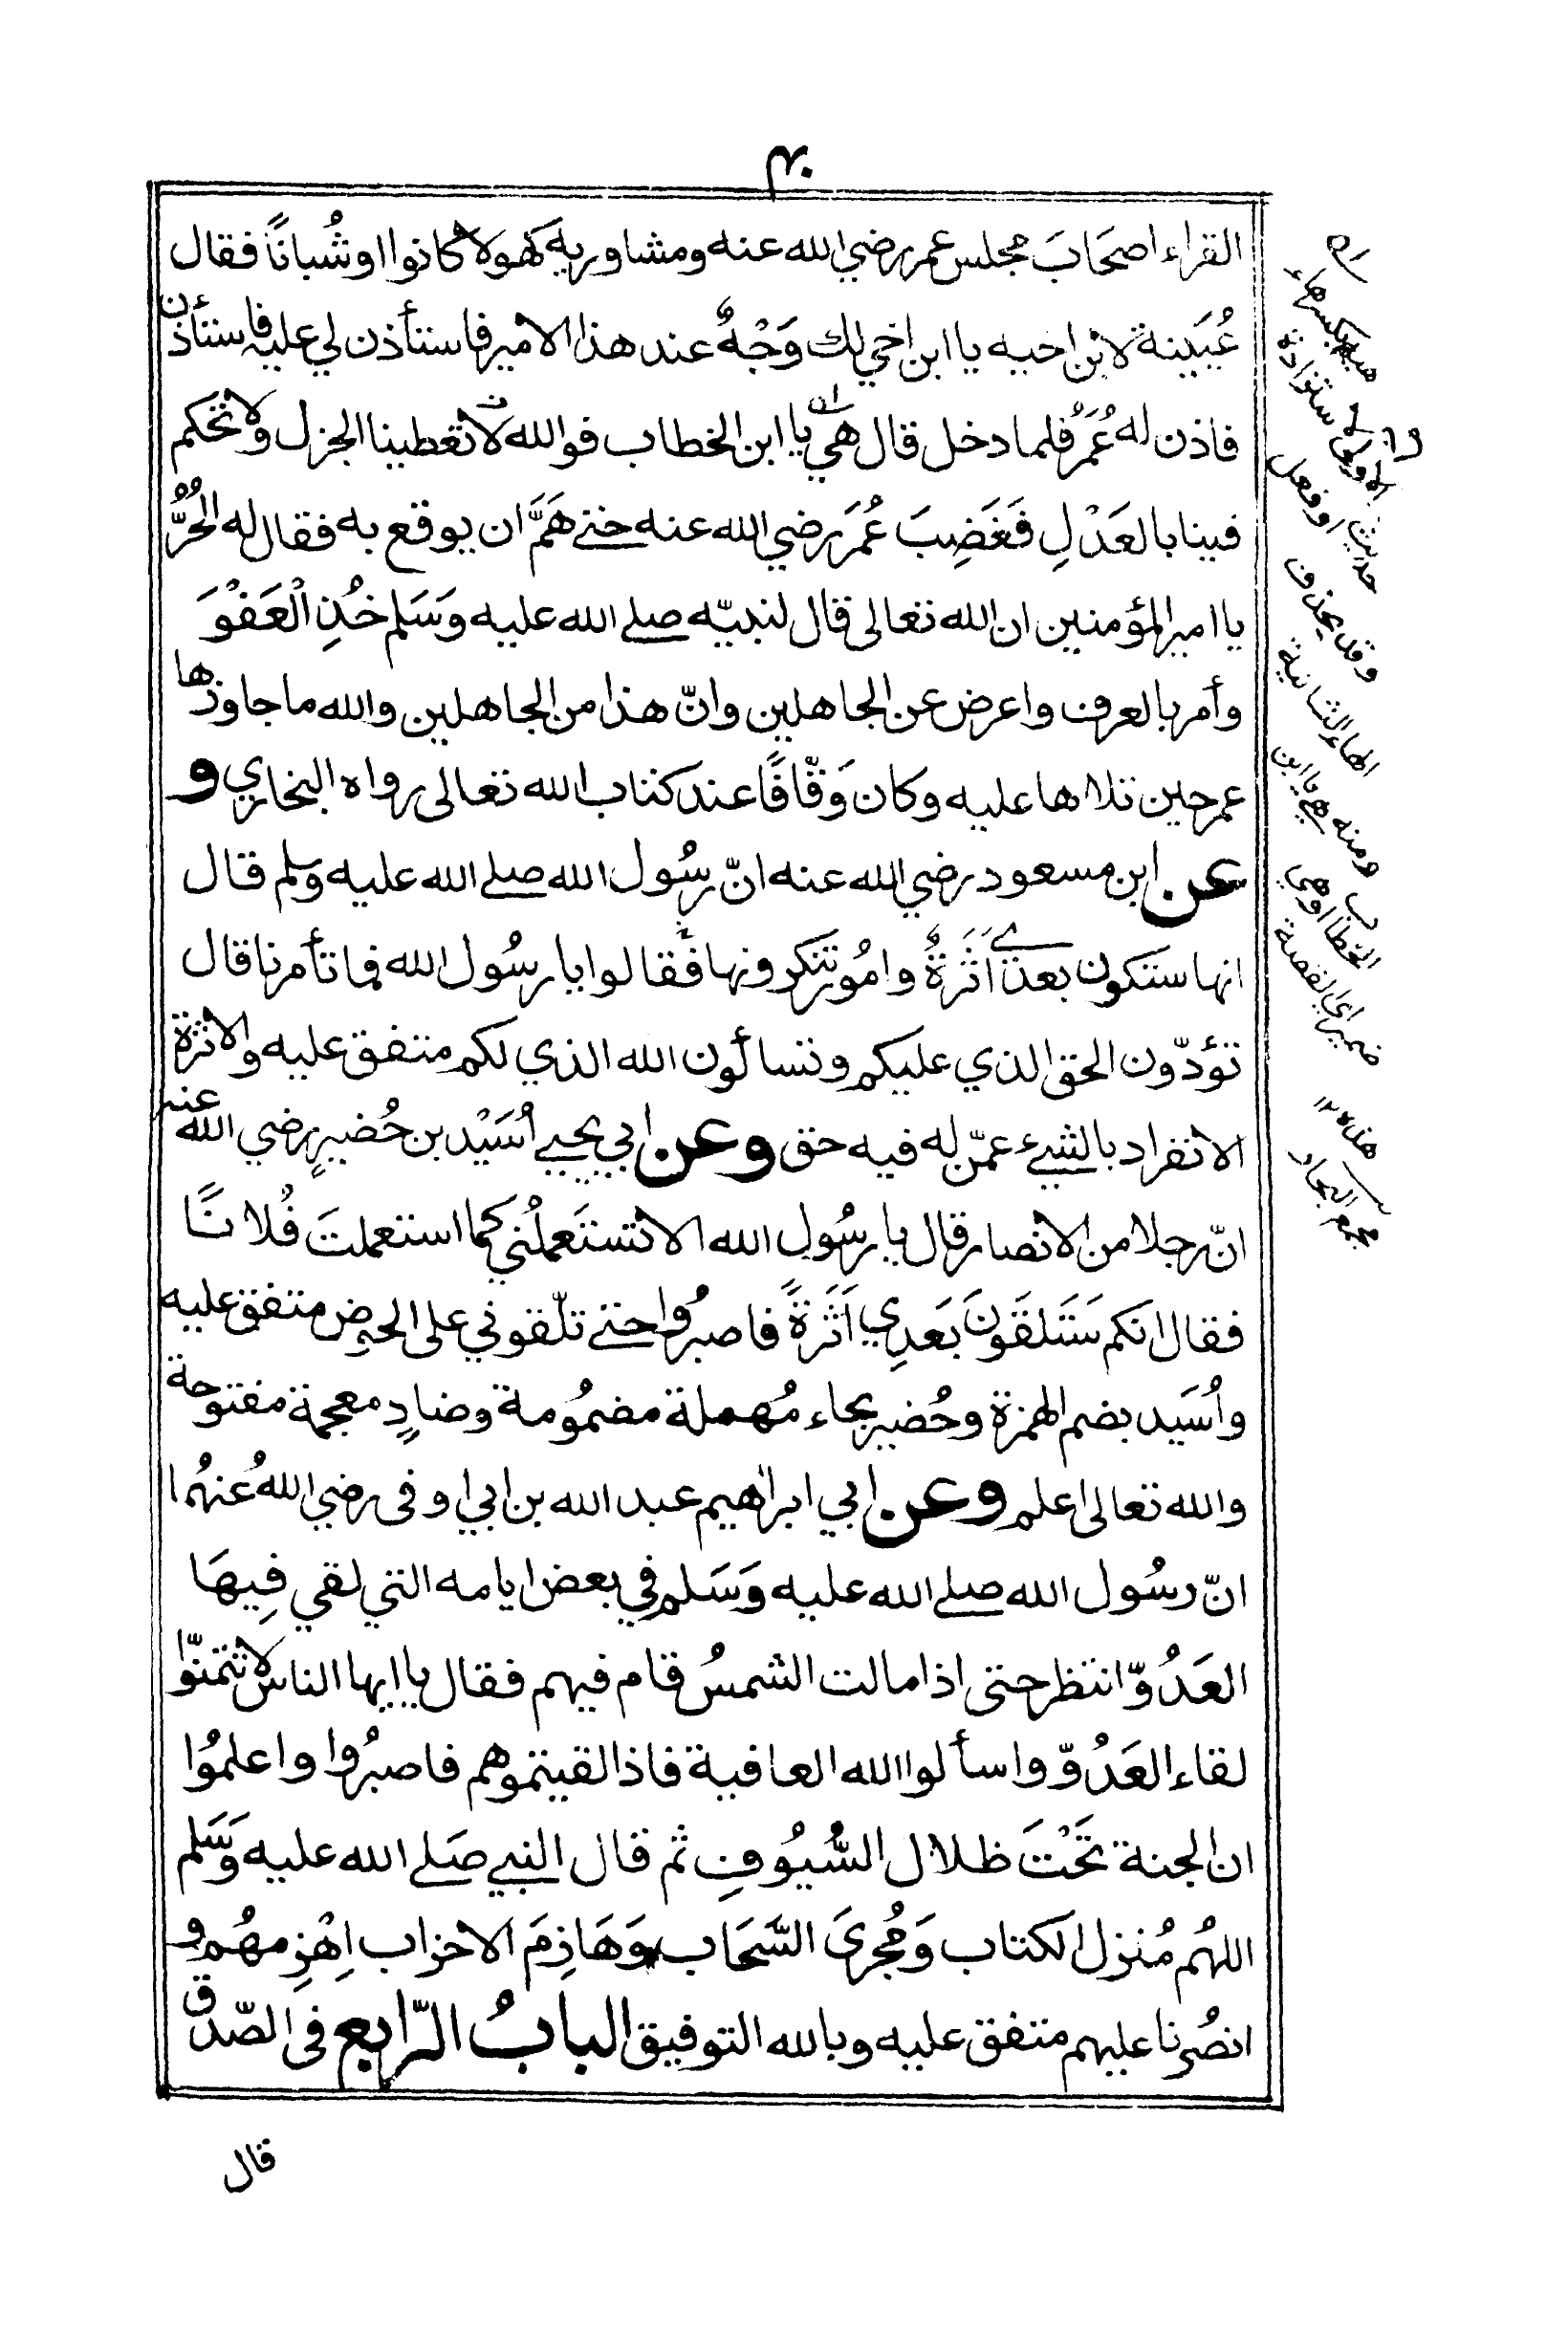 ٣٠
القراء اصحَابَ مجلس عمر رضي الله عنه ومشاوريه كهولا كانوا اوشُباناً فقال
عُيَينة لابن اخيه يا ابن اخي لك وَجْهٌ عند هذا الامير فاستأذن لي عليه فاستأذن
فاذن له عُمَرُ فلما دخل قال هي يا ابن الخطاب فوالله لا تعطينا الجزل ولا تحكم
فينا بالعَدْلِ فَغَضِبَ عُمَرَ رضي الله عنه حتے هَمَّ ان يوقع به فقال له الحُرُّ
يا امير المؤمنين ان الله تعالى قال لنبيّه صلے الله عليه وَسَلم خُذِ الْعَفْوَ
وأمر بالعرف واعرض عن الجاهلين وانّ هذا من الجاهلين والله ما جاوزها
عمر حين تلاها عليه وكان وَقّافًا عند كتاب الله تعالى رواه البخاري و
عن ابن مسعود رضي الله عنه انّ رسُول الله صلے الله عليه وسلم قال
انها ستكون بعدے اَثَرةٌ وامُور تنكرونها فقالوا يا رسُول الله فما تأمرنا قال
تؤدّون الحق الذي عليكم وتسألون الله الذي لكم متفق عليه والاثرة
الانفراد بالشيء عمّن له فيه حق وعن ابي يحيے اُسَيْد بن حُضيرٍ رضي الله عنه
انّ رجلا من الانصار قال يا رسُول الله الا تستَعملُني كما استعملتَ فُلانًا
فقال انكم سَتَلقَونَ بَعدِي اَثَرةً فاصبرُوا حتے تلّقوني على الحوض متفق عليه
واُسَيد بضم الهمزة وحُضير بحاء مُهملة مضمُومة وضادٍ معجمة مفتوحة
والله تعالى اعلم وعن ابي ابراهيم عبد الله بن ابي اوفى رضي اللهُ عنهُما
انّ رسُول الله صلے الله عليه وَسَلم في بعض ايامه التي لقي فِيهَا
العَدُوّ انتظر حتى اذا مالت الشمسُ قام فيهم فقال يا ايها الناس لا تتمنّوا
لقاء العَدُوّ واسألوا الله العافية فاذا لقيتموهم فاصبرُوا واعلمُوا
ان الجنة تَحْتَ ظلال السُّيُوفِ ثم قال النبي صَلے الله عليه وَسَّلم
اللهُم مُنزل الكتاب وَمُجرىَ السَّحَاب وَهَاذِمَ الاحزاب اِهْزِمهُم و
انصُرنا عليهم متفق عليه وبالله التوفيق البابُ الرّابع فى الصّدق
قال
هيه بكسر هاء
الاولى
حديث او فعل
وقد يحذف
الهاء الثانية
ومنه هي يا ابن
الخطاب او هي
ضمير اي القصة
هذه ١٢
مجمع البحار